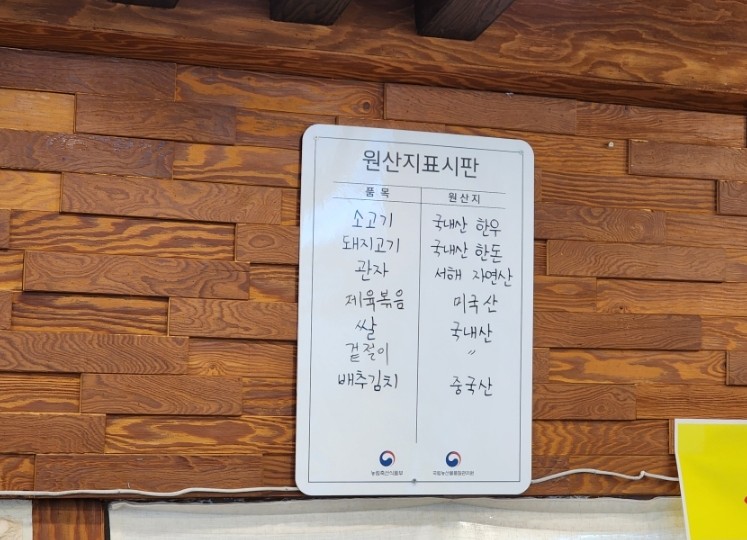 원산지표시판
품 목 원산지
소고기 국내산 한우
돼지고기 국내산 한돈
관자 서해 자연산
제육볶음 미국산
쌀 국내산
겉절이 〃
배추김치 중국산
농림축산식품부 국립농산물품질관리원